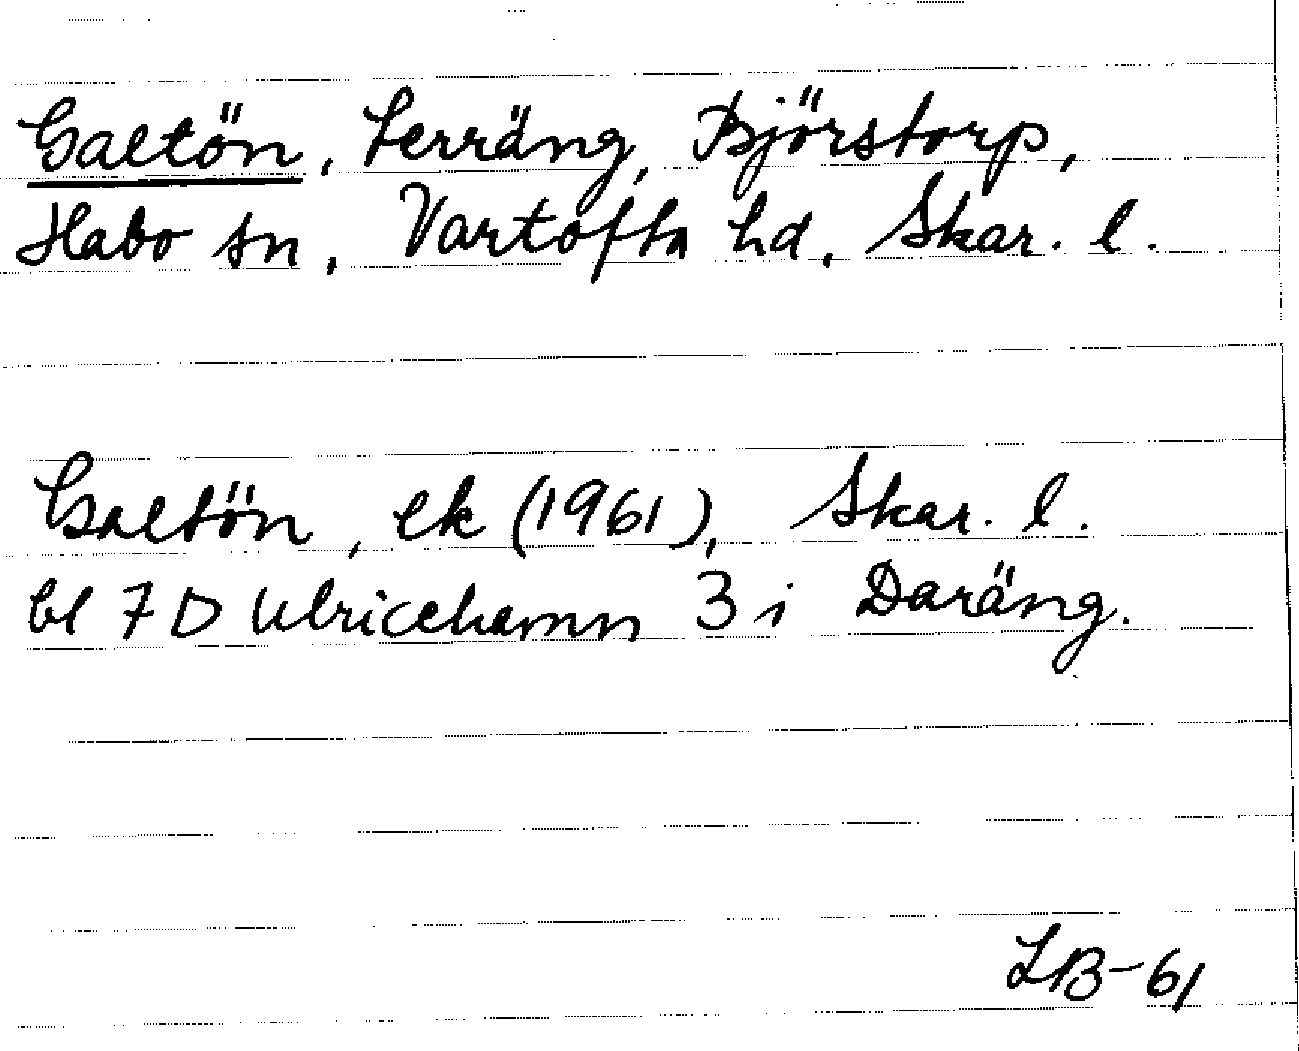 Galtön, terräng, Björstorp,
Habo sn, Vartofta hd, Skar. l.
Galtön, ek (1961), Skar. l.
bl 7 D Ulricehamn 3 i Daräng.
LB-61